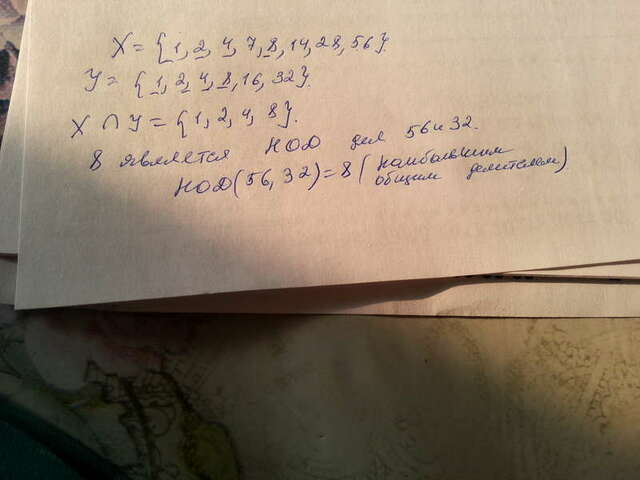 X = {1, 2, 4, 7, 8, 14, 28, 56}
У = {1, 2, 4, 8, 16, 32}.
X ∩ У = {1, 2, 4, 8}.
8 является НОД дел 56 и 32.
НОД (56, 32) = 8 (наибольшим
общим делителем)